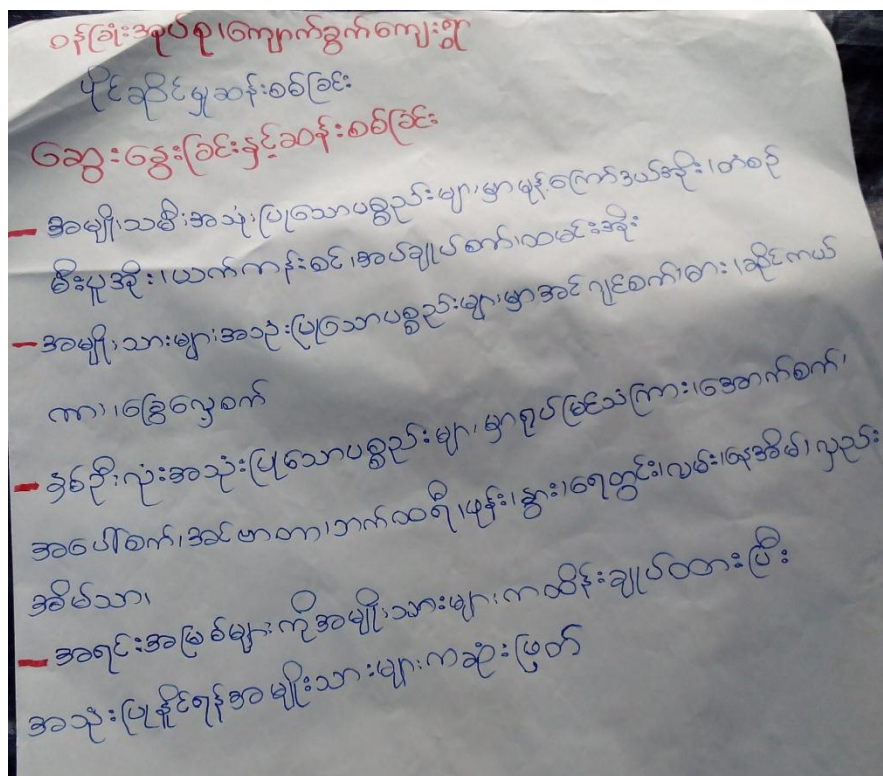 ဝန်ခြုံးအုပ်စု၊ကျောက်ခွက်ကျေးရွာ
ပိုင်ဆိုင်မှုဆန်းစစ်ခြင်း
ဆွေးနွေးခြင်းနှင့်ဆန်းစစ်ခြင်း
- အမျိုးသမီးအသုံးပြုသောပစ္စည်းများမှာမုန့်ကြော်ဒယ်အိုး၊တံစဉ်
မီးပူအိုး၊ယက်ကန်းစင်၊အပ်ချုပ်စက်၊ထမင်းအိုး
- အမျိုးသားများအသုံးပြုသောပစ္စည်းများမှာအင်ဂျင်စက်၊ဓား၊ဆိုင်ကယ်
ကား၊ခြွေလှေ့စက်
- နှစ်ဦးလုံးအသုံးပြုသောပစ္စည်းများမှာရုပ်မြင်သံကြား၊အောက်စက်၊
အပေါ်စက်၊အင်ဗာတာ၊ဘက်ထရီ၊ဖုန်း၊နွား၊ရေတွင်း၊လမ်း၊နေအိမ်၊လှည်း
အိမ်သာ၊
- အရင်းအမြစ်များကိုအမျိုးသားများကထိန်းချုပ်ထားပြီး
အသုံးပြုနိုင်ရန်အမျိုးသားများကဆုံးဖြတ်